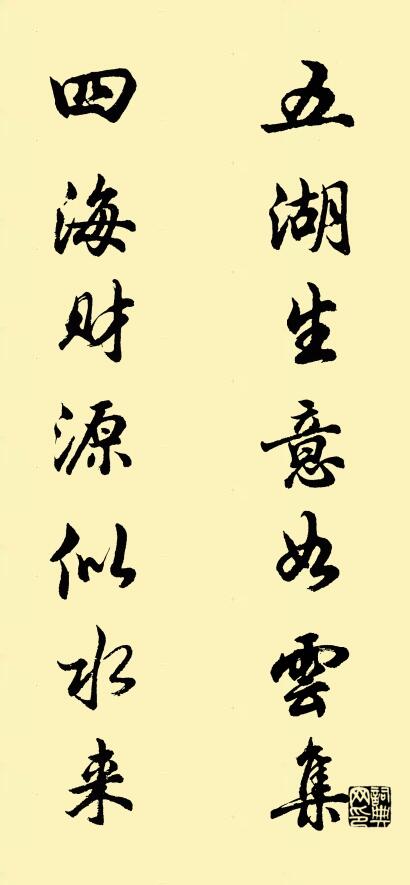 五湖生意如雲集
四海财源似水来
詞典网印